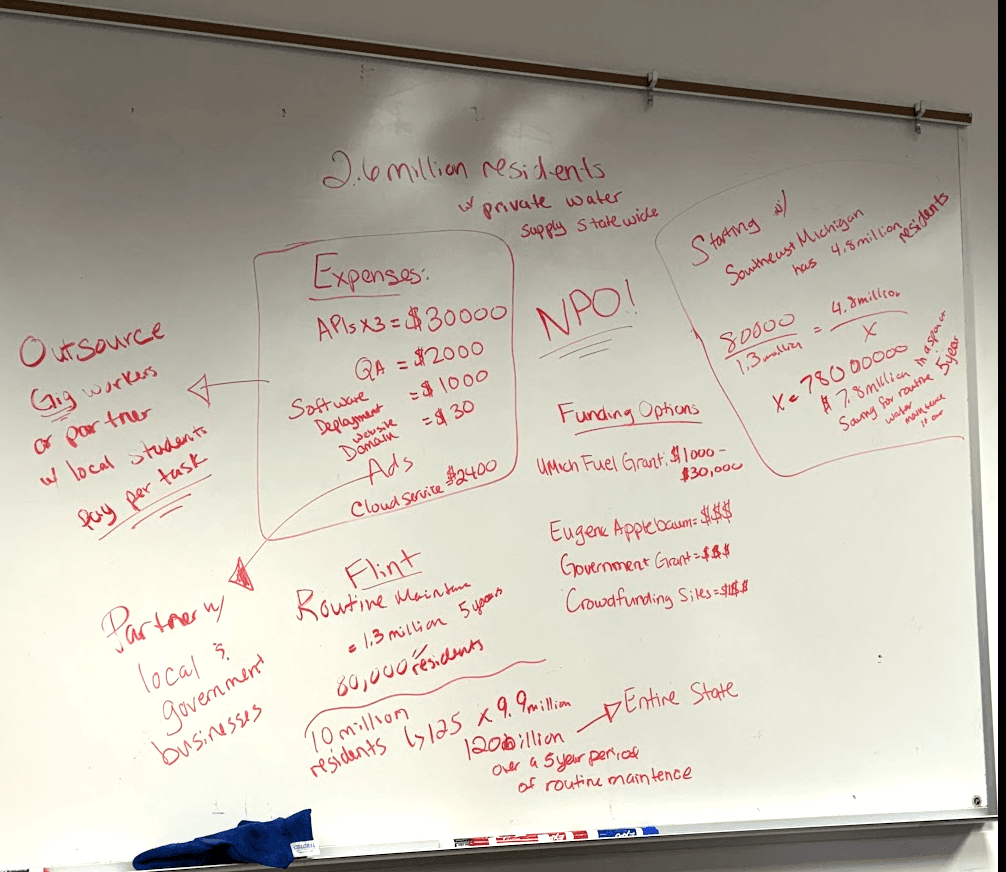 2.6 million residents
w/ private water
supply statewide
Expenses:
APIs x3 = $30000
QA = $2000
Software
Deployment = $1000
website
Domain = $30
Ads
Cloud service $2400
Outsource
Gig workers
or partner
w/ local students
pay per task
Partner w/
local &
government
businesses
NPO!
Funding Options
UMich Fuel Grant: $1000 -
$30,000
Eugene Applebaum = $$$
Government Grant = $$$
Crowdfunding Sites = $$$
Starting w/
Southeast Michigan
has 4.8 million residents
80000 / 1.3 million = 4.8 million / X
X = 78000000
$7.8 million in a span of 5 year
Saving for routine
water
Flint
Routine Maintence
= 1.3 million 5 years
80,000 residents
10 million
residents
125 x 9.9 million
Entire State
over a 5 year period
of routine maintence